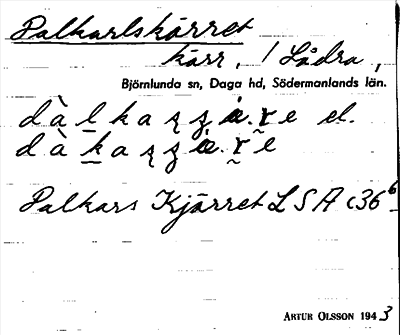 Dalkarlskärret
kärr, 1 Lådra,
Björnlunda sn, Daga hd, Södermanlands län.
el.
Dalkars Kjärret LSA c36⁶
ARTUR OLSSON 1943